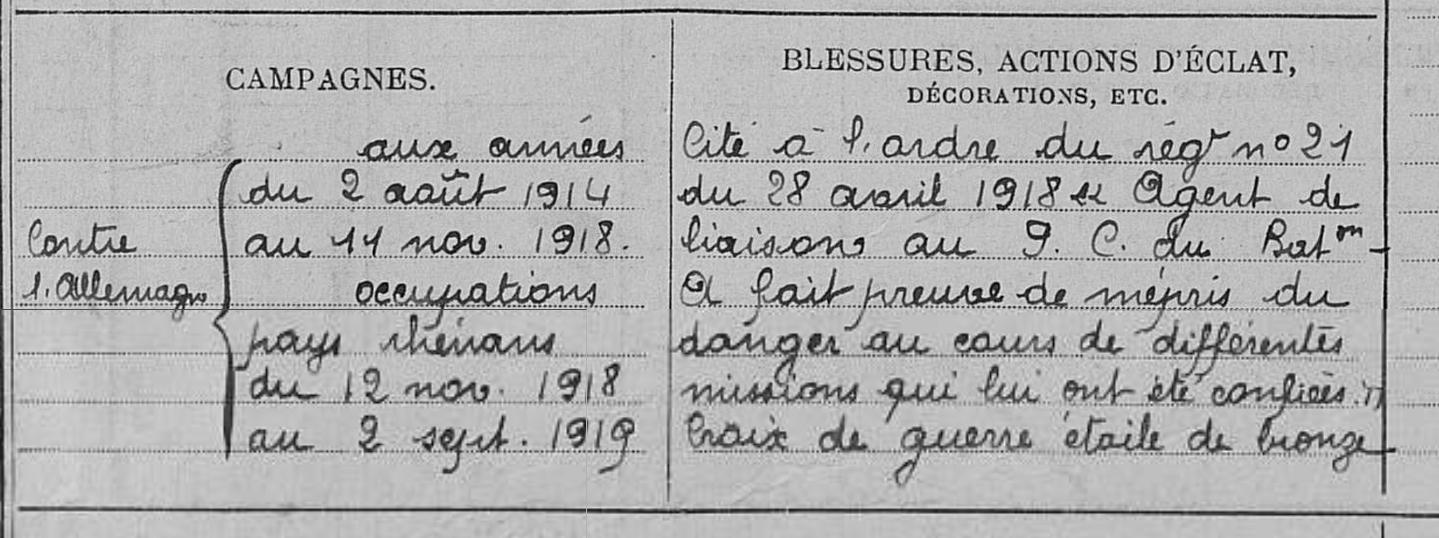 CAMPAGNES.
Contre
l'Allemagne
aux années
du 2 août 1914
au 11 nov. 1918.
occupations
pays rhénans
du 12 nov. 1918
au 2 sept. 1919
BLESSURES, ACTIONS D'ÉCLAT,
DÉCORATIONS, ETC.
Cité à l'ordre du régt no 21
du 28 avril 1918 « Agent de
liaison au P. C. du Baton
A fait preuve de mépris du
danger au cours de différentes
missions qui lui ont été confiées.»
Croix de guerre étoile de bronze